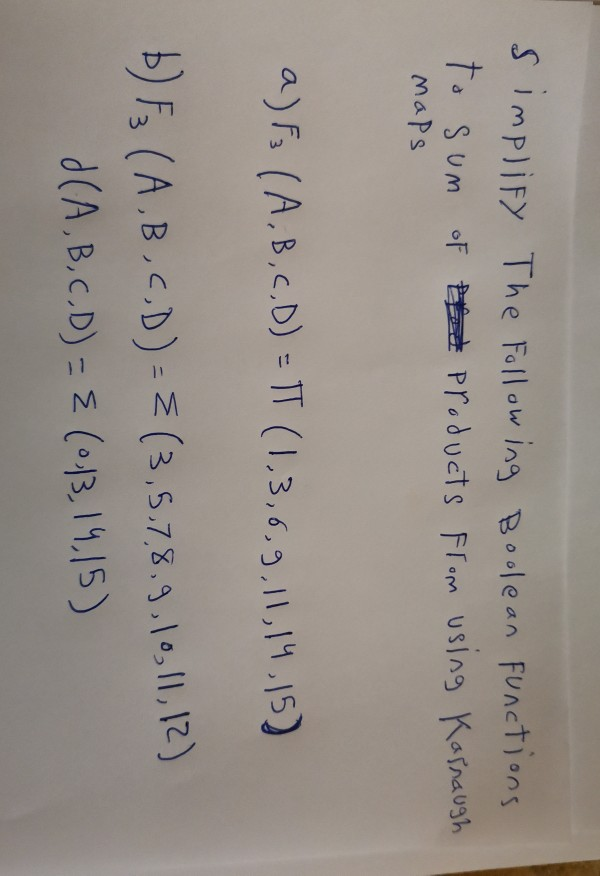 Simplify The Following Boolean Functions
To Sum oF Products From using Karnaugh
maps
a) F₃ (A,B,C,D) = Π (1,3,6,9,11,14,15)
b) F₃ (A,B,C,D) = Σ (3,5,7,8,9,10,11,12)
d(A,B,C,D) = Σ (0,13,14,15)